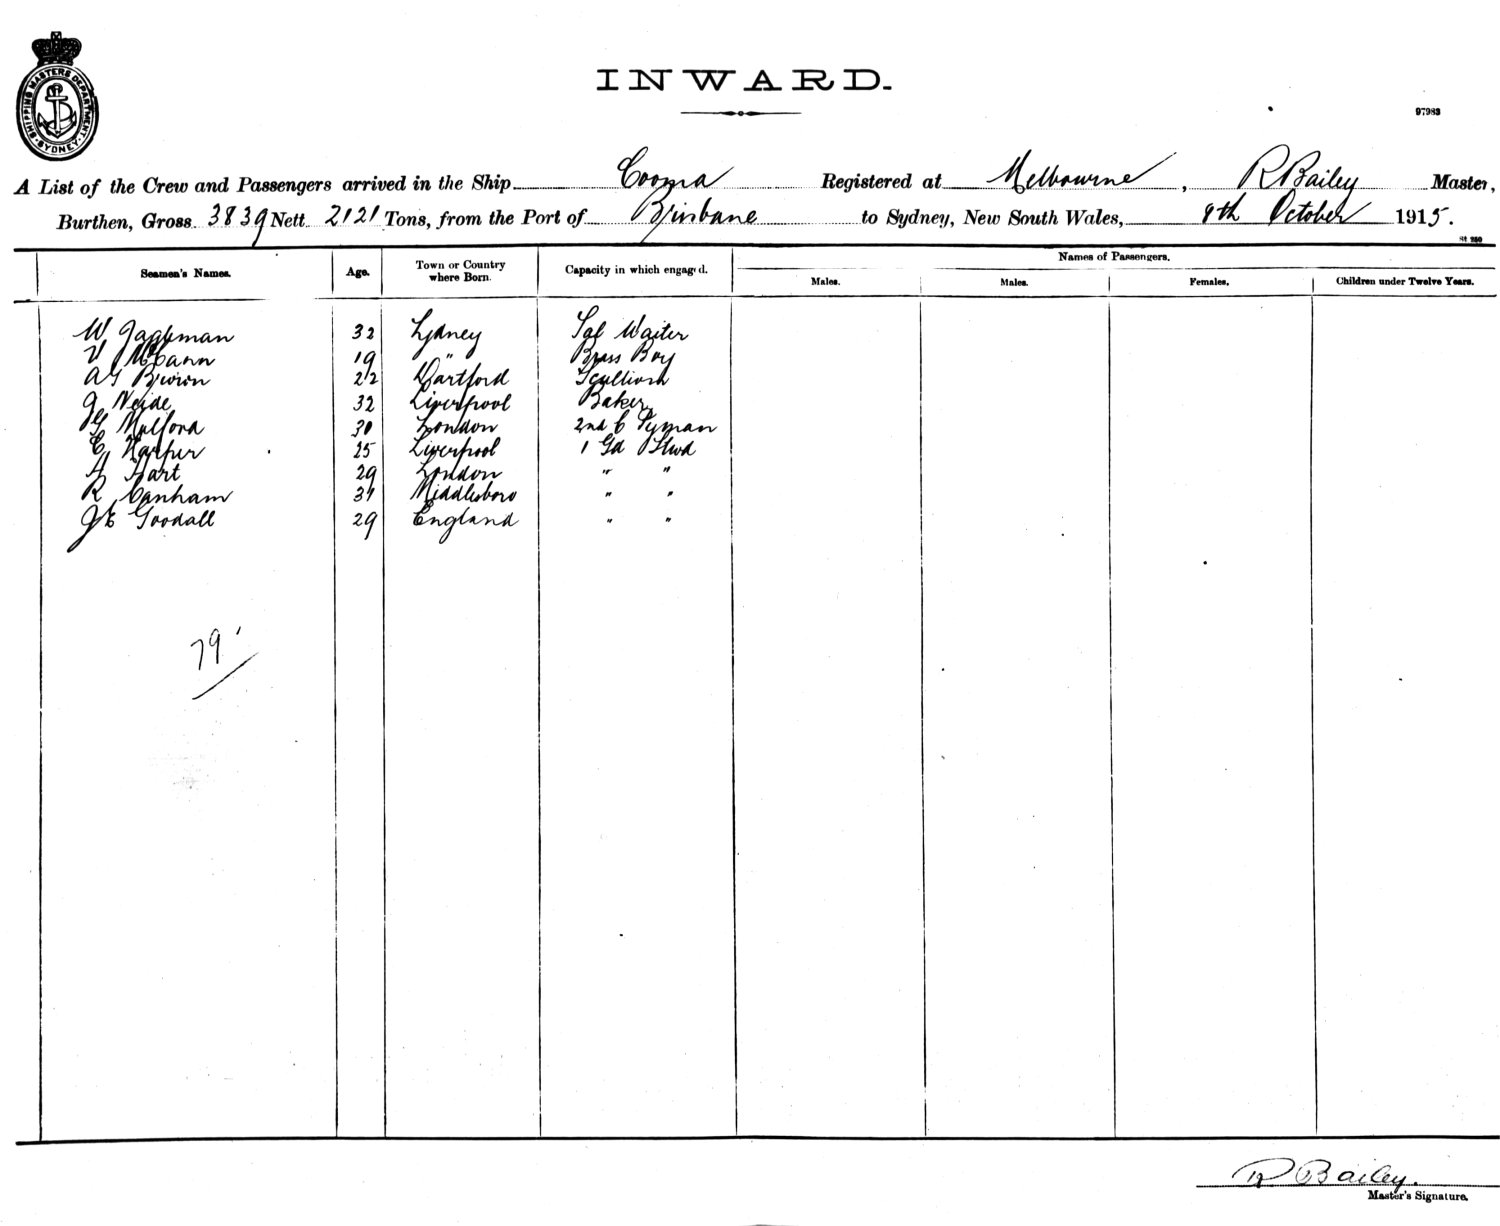 SHIPPING MASTERS DEPARTMENT. SYDNEY.
INWARD.
97983
A List of the Crew and Passengers arrived in the Ship Cooma Registered at Melbourne, R Bailey Master,
Burthen, Gross 3839 Nett 2121 Tons, from the Port of Brisbane to Sydney, New South Wales, 9th October 1915.
St 250
Seamen's Names. Age. Town or Country where Born. Capacity in which engaged. Names of Passengers.
Males. Males. Females. Children under Twelve Years.
W 32 Sydney Sal Waiter
V McCann 19 " Brass Boy
A G Brown 22 Dartford Scullion
J Neide 32 Liverpool Baker
G Mulford 30 London 2nd C Pyman
C Harper 25 Liverpool 1 Gd Stwd
A Hart 29 London " "
R Canham 31 Middlesboro " "
J E Goodall 29 England " "
79
R Bailey.
Master's Signature.